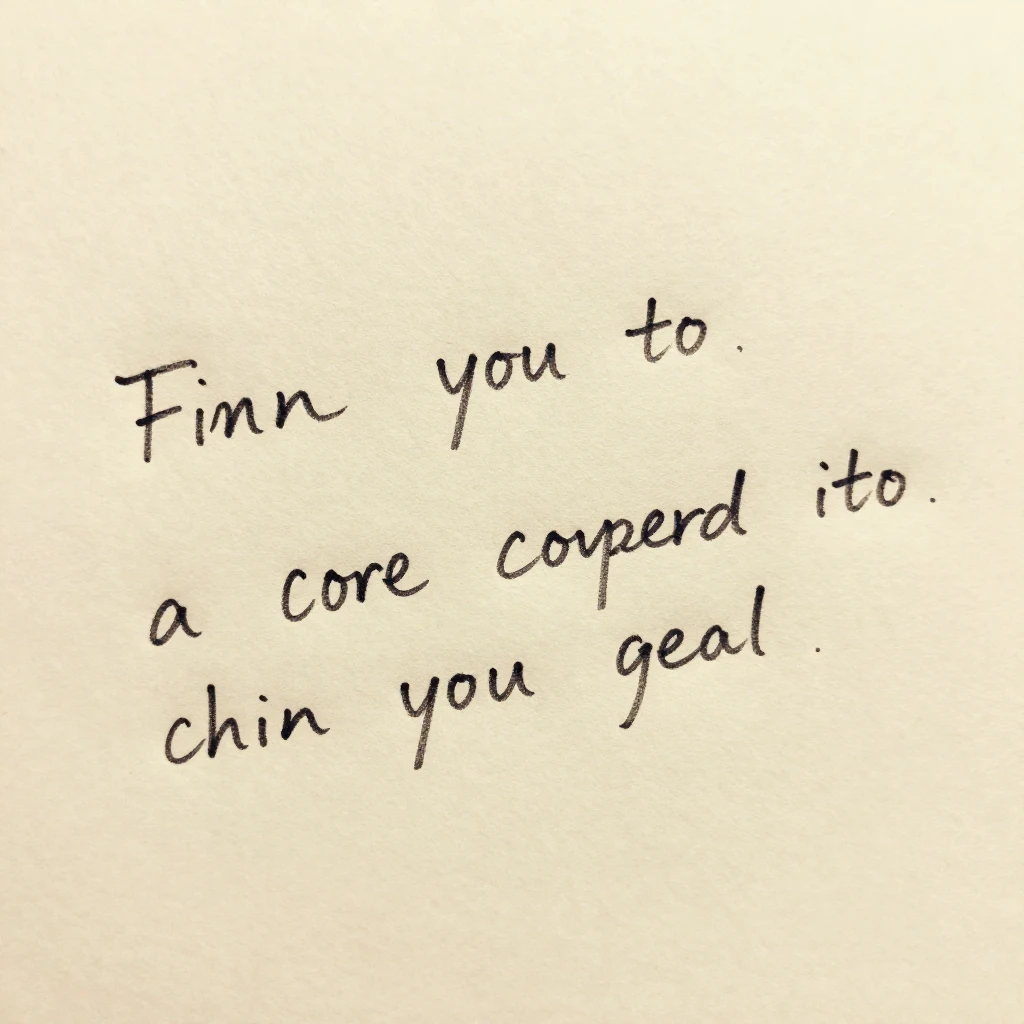 Finn you to.
a core coyperd ito.
chin you geal.